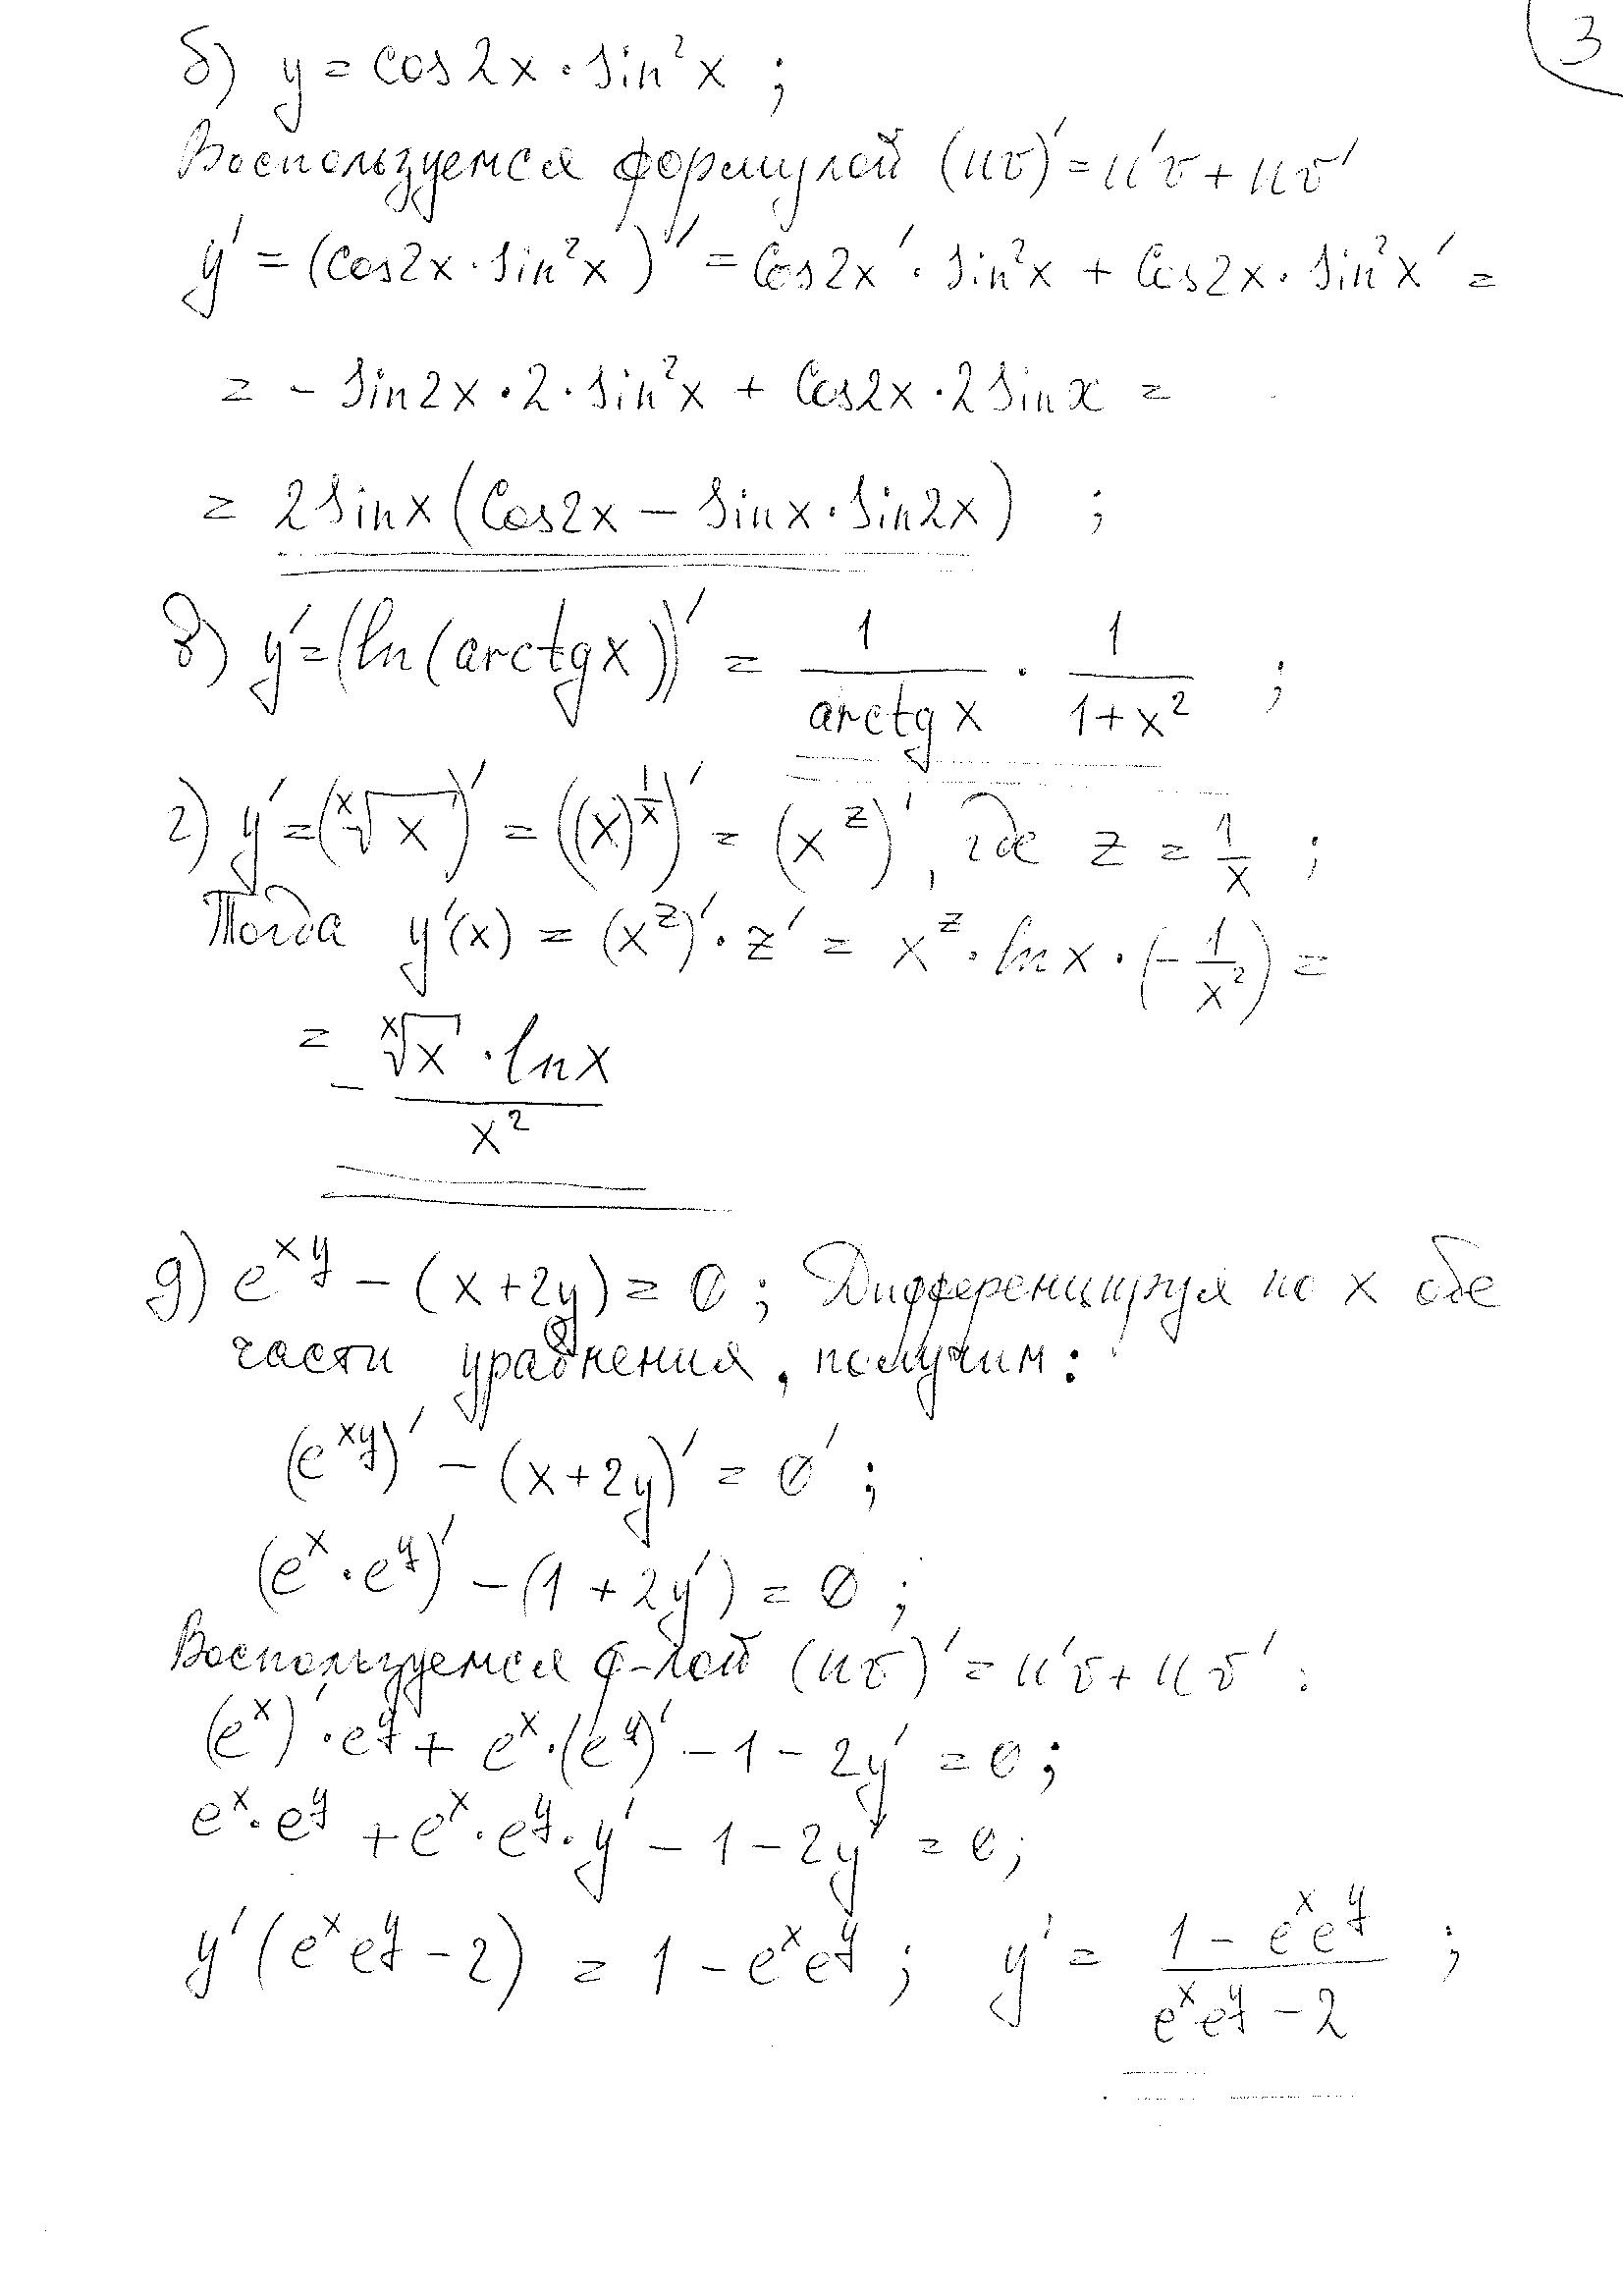 3
б) y = cos2x · sin²x ;
Воспользуемся формулой (uv)′ = u′v + uv′
y′ = (cos2x · sin²x)′ = cos2x′ · sin²x + cos2x · sin²x′ =
= - sin2x · 2 · sin²x + cos2x · 2sinx =
= 2sinx (cos2x – sinx · sin2x) ;
в) y′ = (ln(arctgx))′ = 1/(arctg x) · 1/(1+x²) ;
г) y′ = (ˣ√x)′ = ((x)^(1/x))′ = (x^z)′, где z = 1/x ;
Тогда y′(x) = (x^z)′ · z′ = x^z · lnx · (- 1/x²) =
= - (ˣ√x · lnx)/x²
д) e^(xy) – (x+2y) = 0 ; Дифференцируя по x обе
части уравнения, получим:
(e^(xy))′ – (x+2y)′ = 0′ ;
(e^x · e^y)′ – (1 + 2y′) = 0 ;
Воспользуемся ф-лой (uv)′ = u′v + uv′ :
(e^x)′ · e^y + e^x · (e^y)′ – 1 – 2y′ = 0 ;
e^x · e^y + e^x · e^y · y′ – 1 – 2y′ = 0 ;
y′ (e^x e^y – 2) = 1 – e^x e^y ; y′ = (1 – e^x e^y)/(e^x e^y – 2) ;